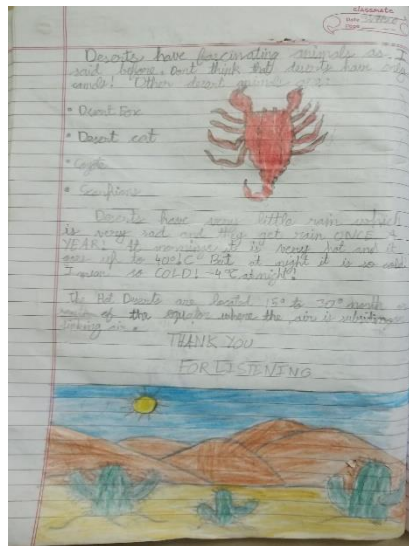 classmate
Date
Page
Deserts have fascinating animals as I
said before. Dont think that deserts have only
sand! Other desert animals are:-
• Desert Fox
• Desert cat
• Coyote
• Scorpions
Deserts have very little rain which
is very sad and they get rain ONCE A
YEAR! At mornings it is very hot and it
goes up to 40°C But at night it is so cold
I mean so COLD! -4°C at night!
The Hot Deserts are located 15° to 30° north
of the equator where the air is
sinking air.
THANK YOU
FOR LISTENING